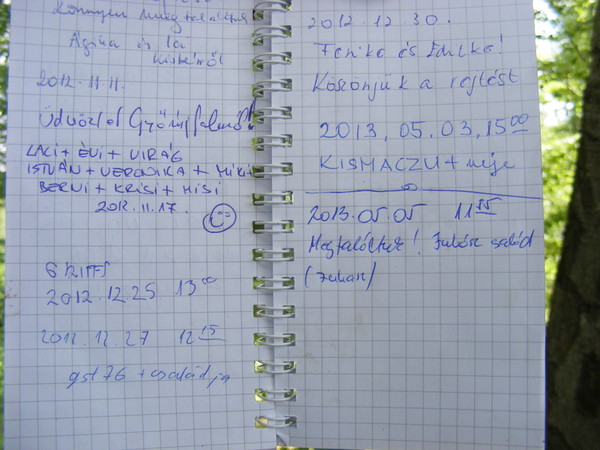 Könnyen megtaláltuk
Ágina és la
2012. 11. 11.
Üdvözlet Győrújfaluból!
LACI + ÉVI + VIRÁG
ISTVÁN + VERONIKA + MIKI
BERNI + KRISI + MISI
2012. 11. 17.
GRIFFS
2012. 12. 25 13 00
2012. 12. 27 12 15
gst76 + családja
2012 12 30.
Teniko és Enciko!
Köszönjük a rejtést
2013. 05. 03. 15 00
KISMACZU + neje
2013. 05. 05 11 15
Megtaláltuk! Juhász család
(Juhasz)